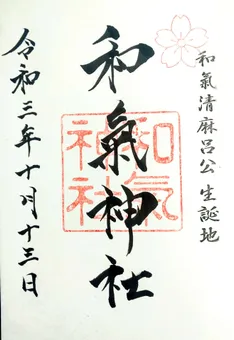 和氣清麻呂公生誕地
和氣神社
和氣神社
令和三年十月十三日